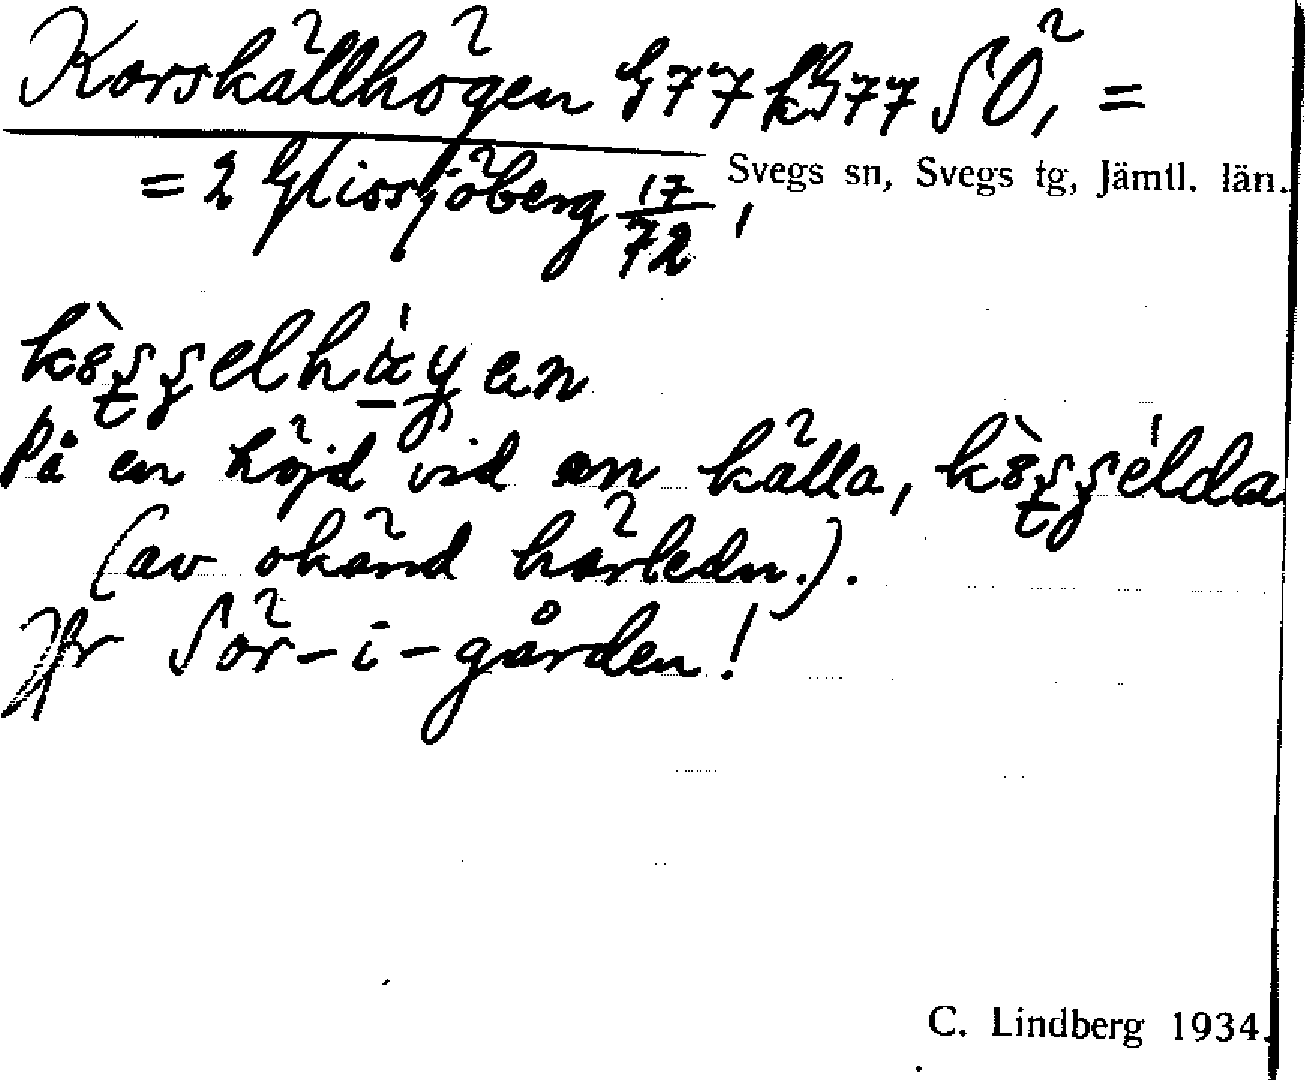 Korskällhögen G77kG77 SÖ, =
= 2 Glissjöberg 17/72,
Svegs sn, Svegs tg, Jämtl. län.
På en höjd vid en källa,
(av okänd härledn.).
Jfr Sör-i-gården!
C. Lindberg 1934.